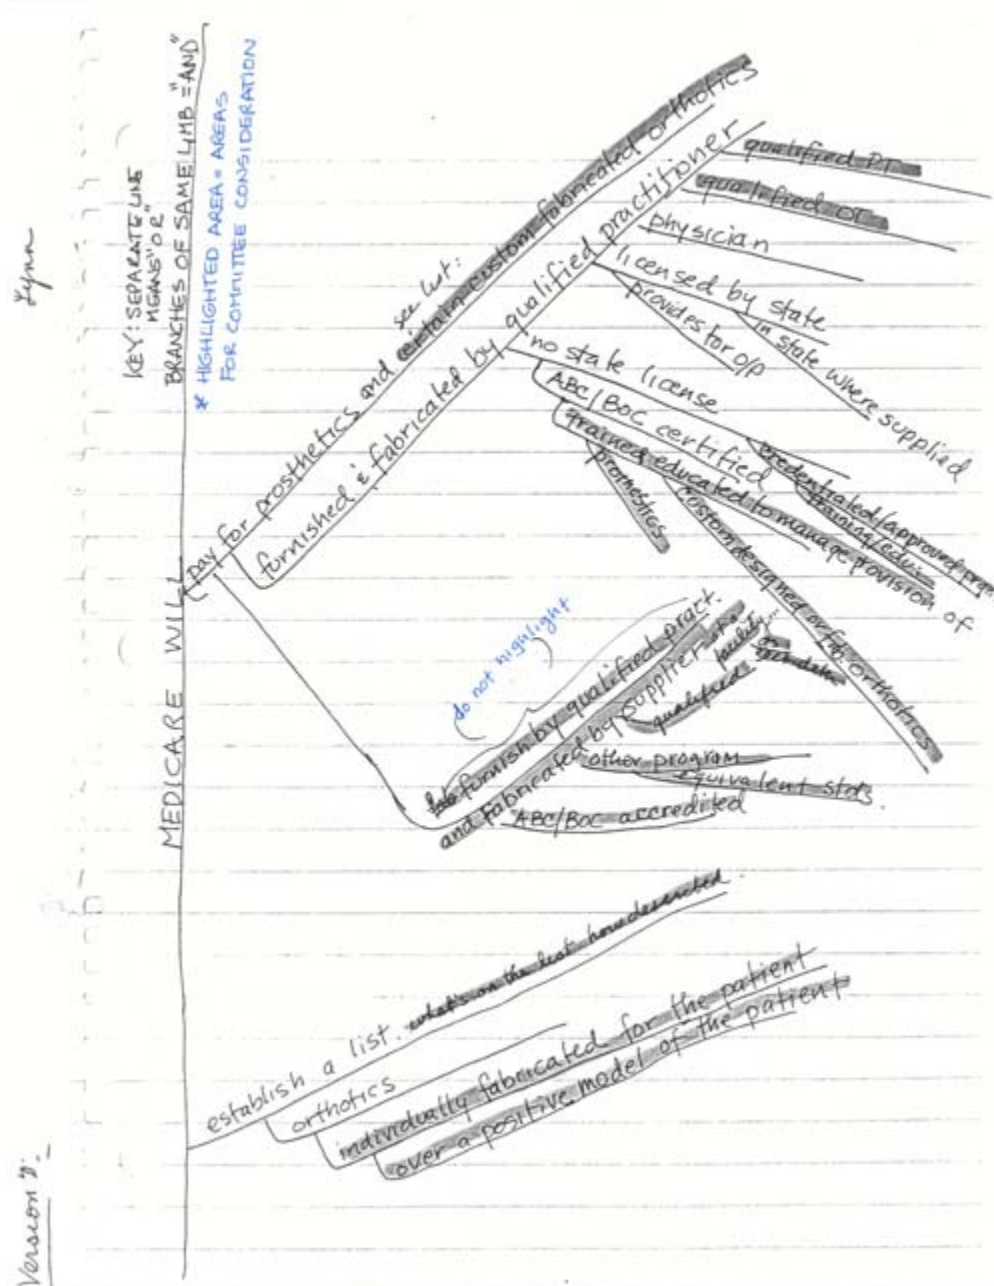 Lynn
KEY: SEPARATE LINE
MEANS "OR"
BRANCHES OF SAME LIMB = "AND"
* HIGHLIGHTED AREA = AREAS
FOR COMMITTEE CONSIDERATION
MEDICARE WILL
see list:
pay for prosthetics and certain custom fabricated orthotics
furnished & fabricated by qualified practitioner
qualified PT
qualified OT
physician
licensed by state
in state where supplied
provides for O/P
no state license
ABC/BOC certified
credentialed/approved
training/educ
trained educated to manage provision of
prosthetics
custom designed or fab orthotics
do not highlight
furnish by qualified pract.
and fabricated by supplier
facility...
qualified
other program
equivalent stds.
ABC/BOC accredited
establish a list. what's on the list how described
orthotics
individually fabricated for the patient
over a positive model of the patient
Version